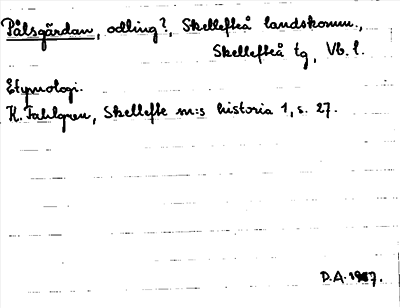 Pålsgärdan, odling?, Skellefteå landskomm.,
Skellefteå tg, Vb. l.
Etymologi.
K. Fahlgren, Skellefte sn:s historia 1, s. 27.
D.A. 1967.